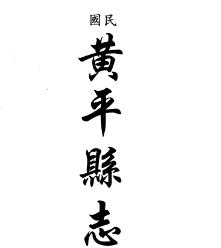 民國
黃平縣志